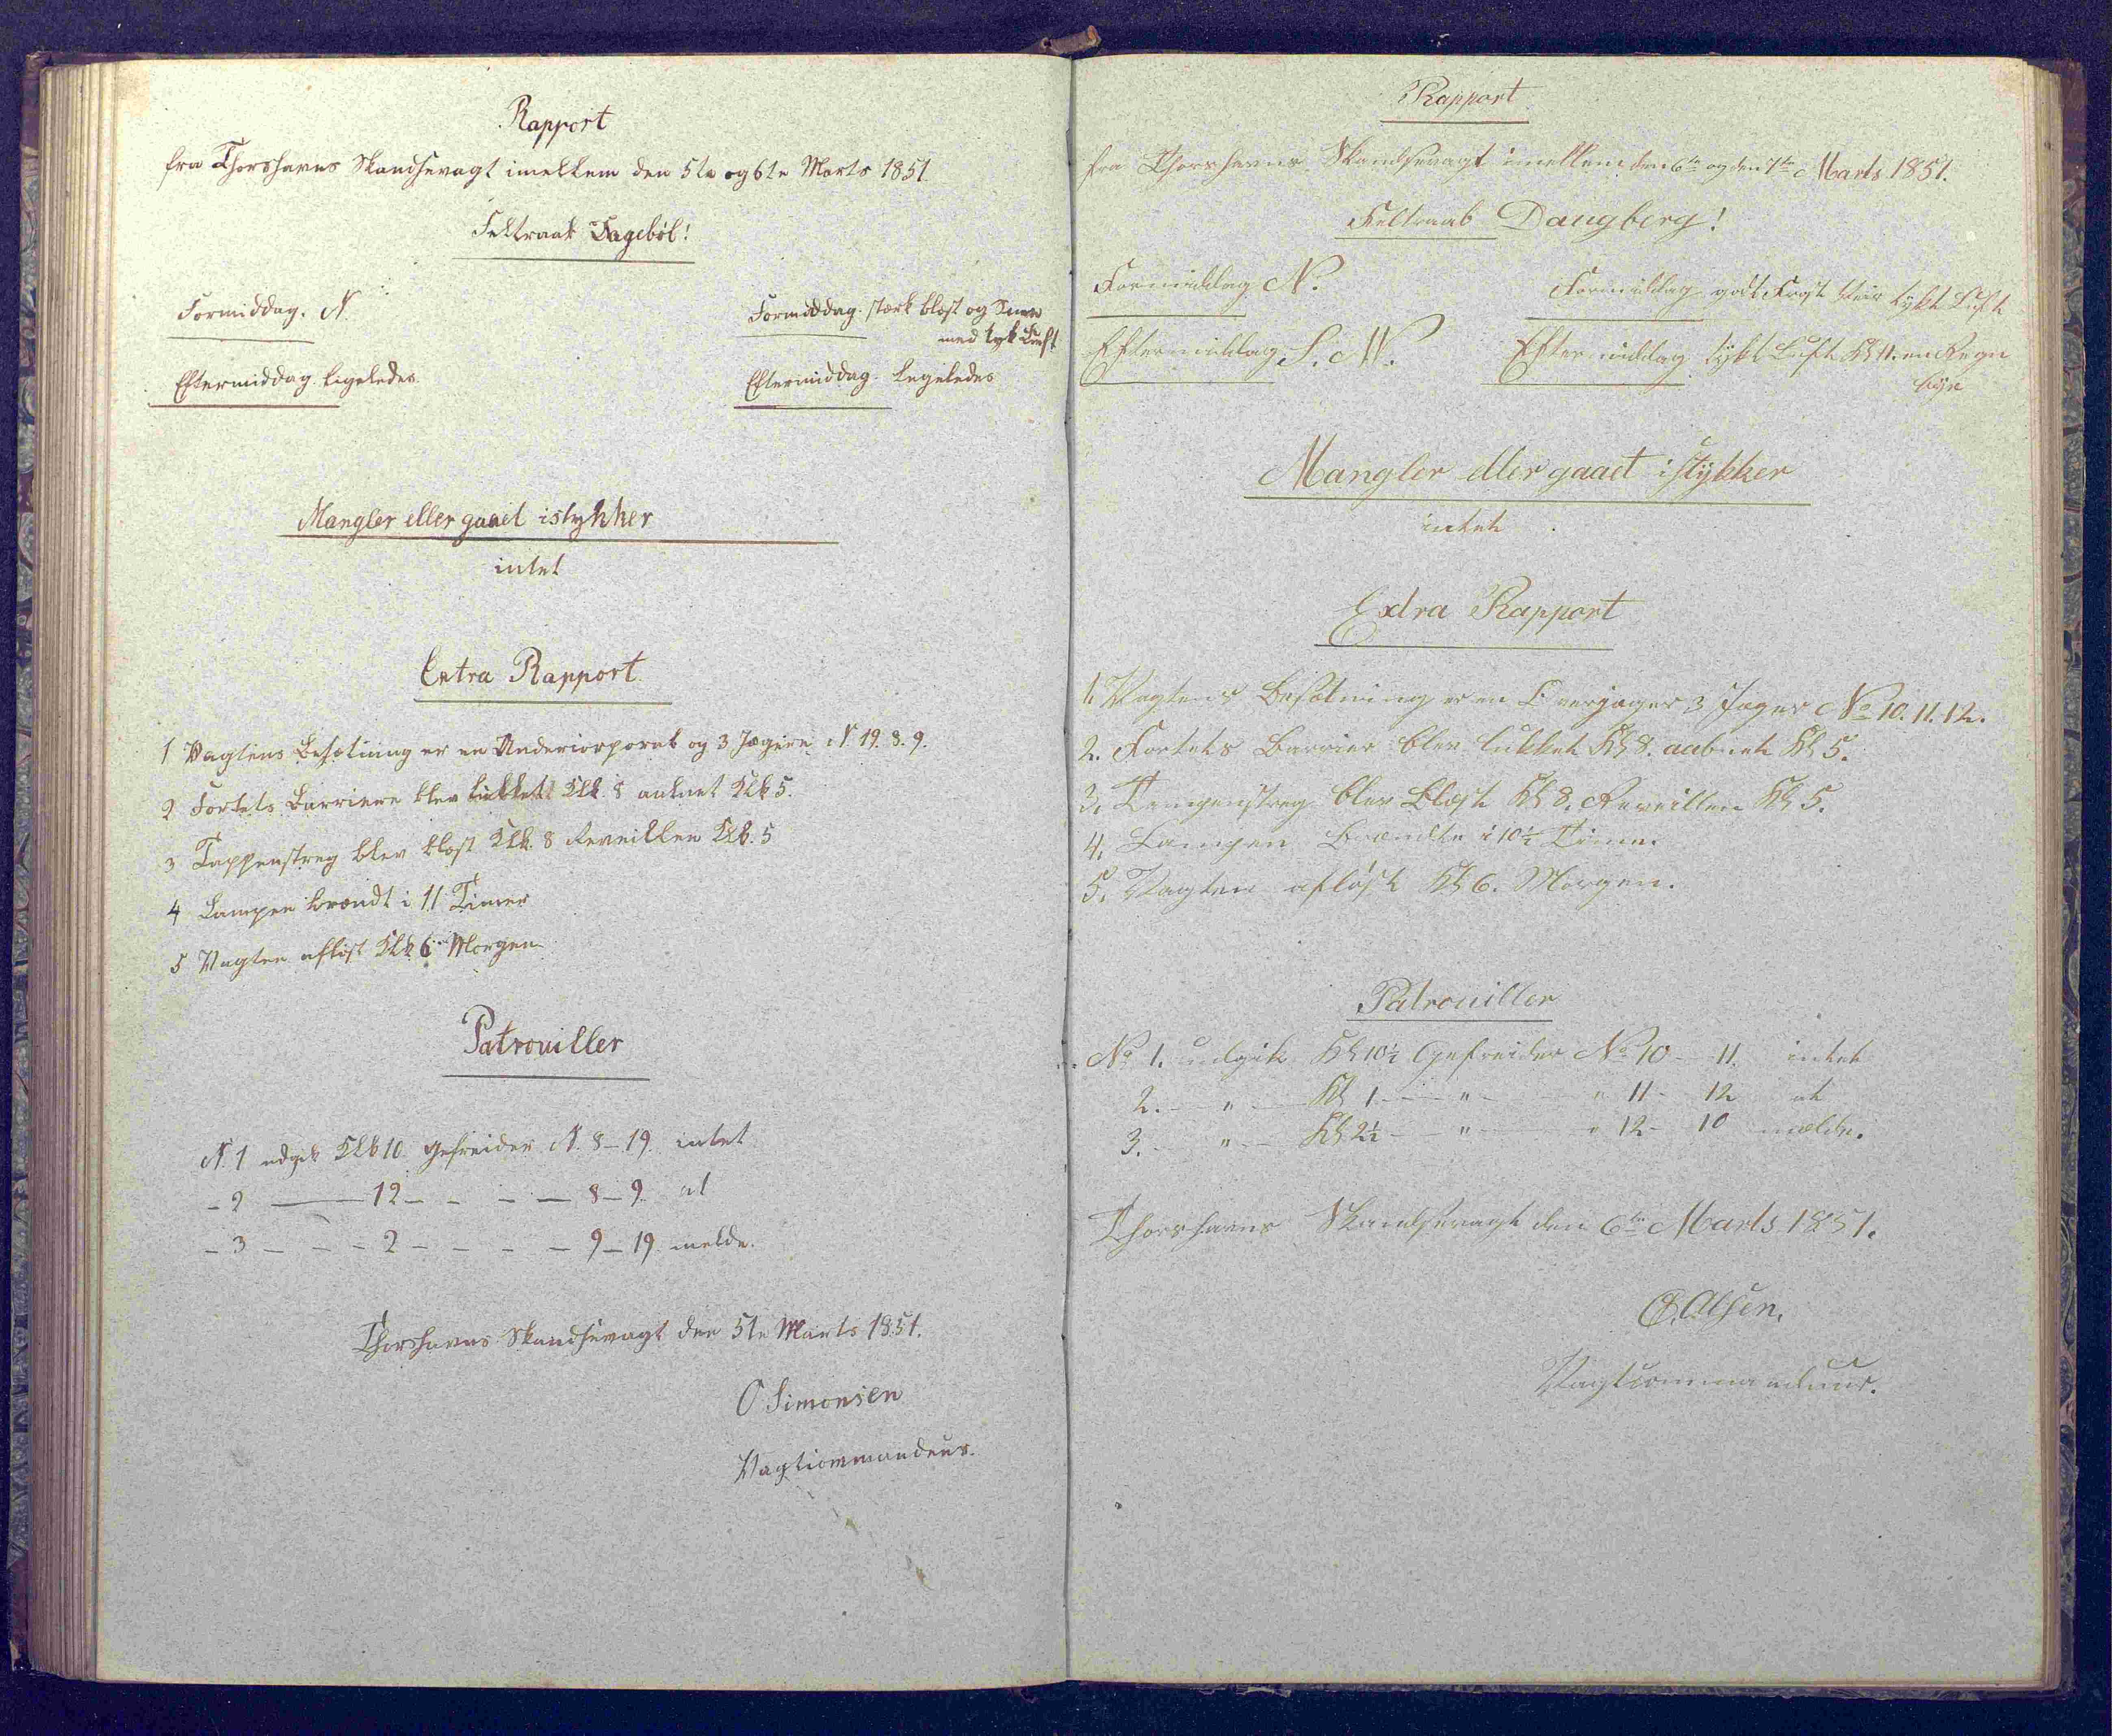 Rapport
fra Thorshavns Skandsevagt imellem den 5te og 6te Marts 1851
Feltraab Dagebøl!
Formiddag. N.
Formiddag. stærk blæst og Snee
med tyk Luft
Eftermiddag. ligeledes.
Eftermiddag. ligeledes
Mangler eller gaaet istykker
intet
Extra Rapport
1 Vagtens Besætning er en Undercorporal og 3 Jægere N. 19. 8. 9.
2 Fortets Barriere blev lukket Klk. 8 aabnet Klk 5.
3 Tappenstreg blev blæst Klk. 8 Reveillen Klk. 5
4 Lampen brændt i 11 Timer
5 Vagten afløst Klk 6 Morgen
Patrouiller
N. 1 udgik Klk 10 Gefreider N. 8–19. intet
– 2 — 12 – – – — 8–9. at
– 3 – – – 2 – – – – – 9–19. melde.
Thorshavns Skandsevagt den 5te Marts 1851.
O Simonsen
Vagtcommandeur.
Rapport
fra Thorshavns Skandsevagt imellem den 6te og den 7de Marts 1851.
Feltraab Daugberg!
Formiddag N.
Formiddag godt Veir tykt Luft
Eftermiddag S. W.
Eftermiddag tykt Luft Kl 11. en Regn
byge
Mangler eller gaaet istykker
intet
Extra Rapport
1. Vagtens Besætning er en Overjæger 3 Jæger No 10. 11. 12.
2. Fortets Barrier blev lukket Kl 8. aabnet Kl 5.
3. Tampenstreg blev Blæst Kl 8. Reveillen Kl 5.
4. Lampen Brændte i 10½ Time.
5. Vagten afløst Kl 6. Morgen.
Patrouiller
No 1. udgik Kl 10½ Gefreider No 10 – 11. intet
2. – " — Kl 1 – – " – " 11 – 12 at
3. – " – Kl 2½ – " — " 12 – 10 melde.
Thorshavns Skandsevagt den 6te Marts 1851.
Olsen.
Vagtcommandeur.